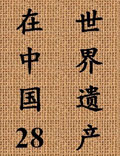 世界遗产
在中国28